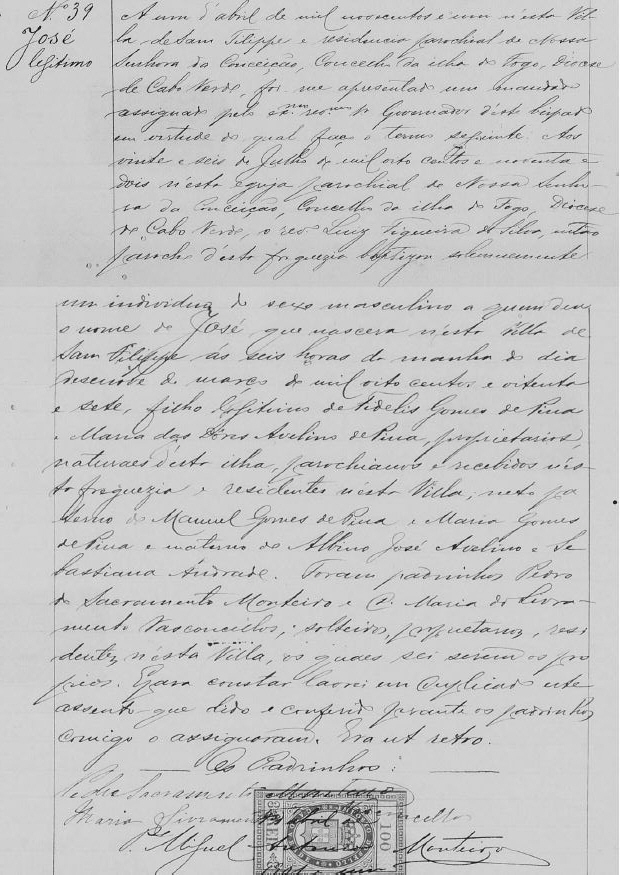 Nº 39
José
legitimo
A um d'abril de mil novecentos e um n'esta Vil-
la de Sam Filippe e residencia parochial de Nossa
Senhora da Conceição, Concelho da ilha do Fogo, Diocese
de Cabo Verde, foi me apresentado um mandado
assignado pelo ex.mo rev.mo Sr Governador d'este bispado
em virtude do qual faço o termo seguinte: Aos
vinte e seis de Julho de mil oito centos e noventa e
dois n'esta egreja parochial de Nossa Senho-
ra da Conceição, Concelho da ilha do Fogo, Diocese
de Cabo Verde, o revº Luiz Figueira da Silva, então
parocho d'esta freguezia baptizou solemnemente
um individuo do sexo masculino a quem deu
o nome de José, que nascera n'esta Villa de
Sam Filippe ás seis horas da manhã do dia
desenove de março de mil oito centos e oitenta
e sete, filho legitimo de Fidelis Gomes de Pina
e Maria das Dôres Avelino de Pina, proprietarios,
naturaes d'esta ilha, parochianos e recebidos n'es-
ta freguezia e residentes n'esta Villa; neto pa
terno de Manuel Gomes de Pina e Maria Gomes
de Pina e materno de Albino José Avelino e Se-
bastiana Andrade. Foram padrinhos Pedro
do Sacramento Monteiro e D. Maria do Livra-
mento Vasconcellos, solteiros, proprietarios, resi
dentes n'esta Villa, os quaes sei serem os pro
prios. E para constar lavrei em duplicado este
assento que lido e conferido perante os padrinhos
comigo o assignaram. Era ut retro.
Os Padrinhos:
Pedro Sacramento Monteiro
Maria Livramento Vasconcellos
P. Miguel Antonio Monteiro
100